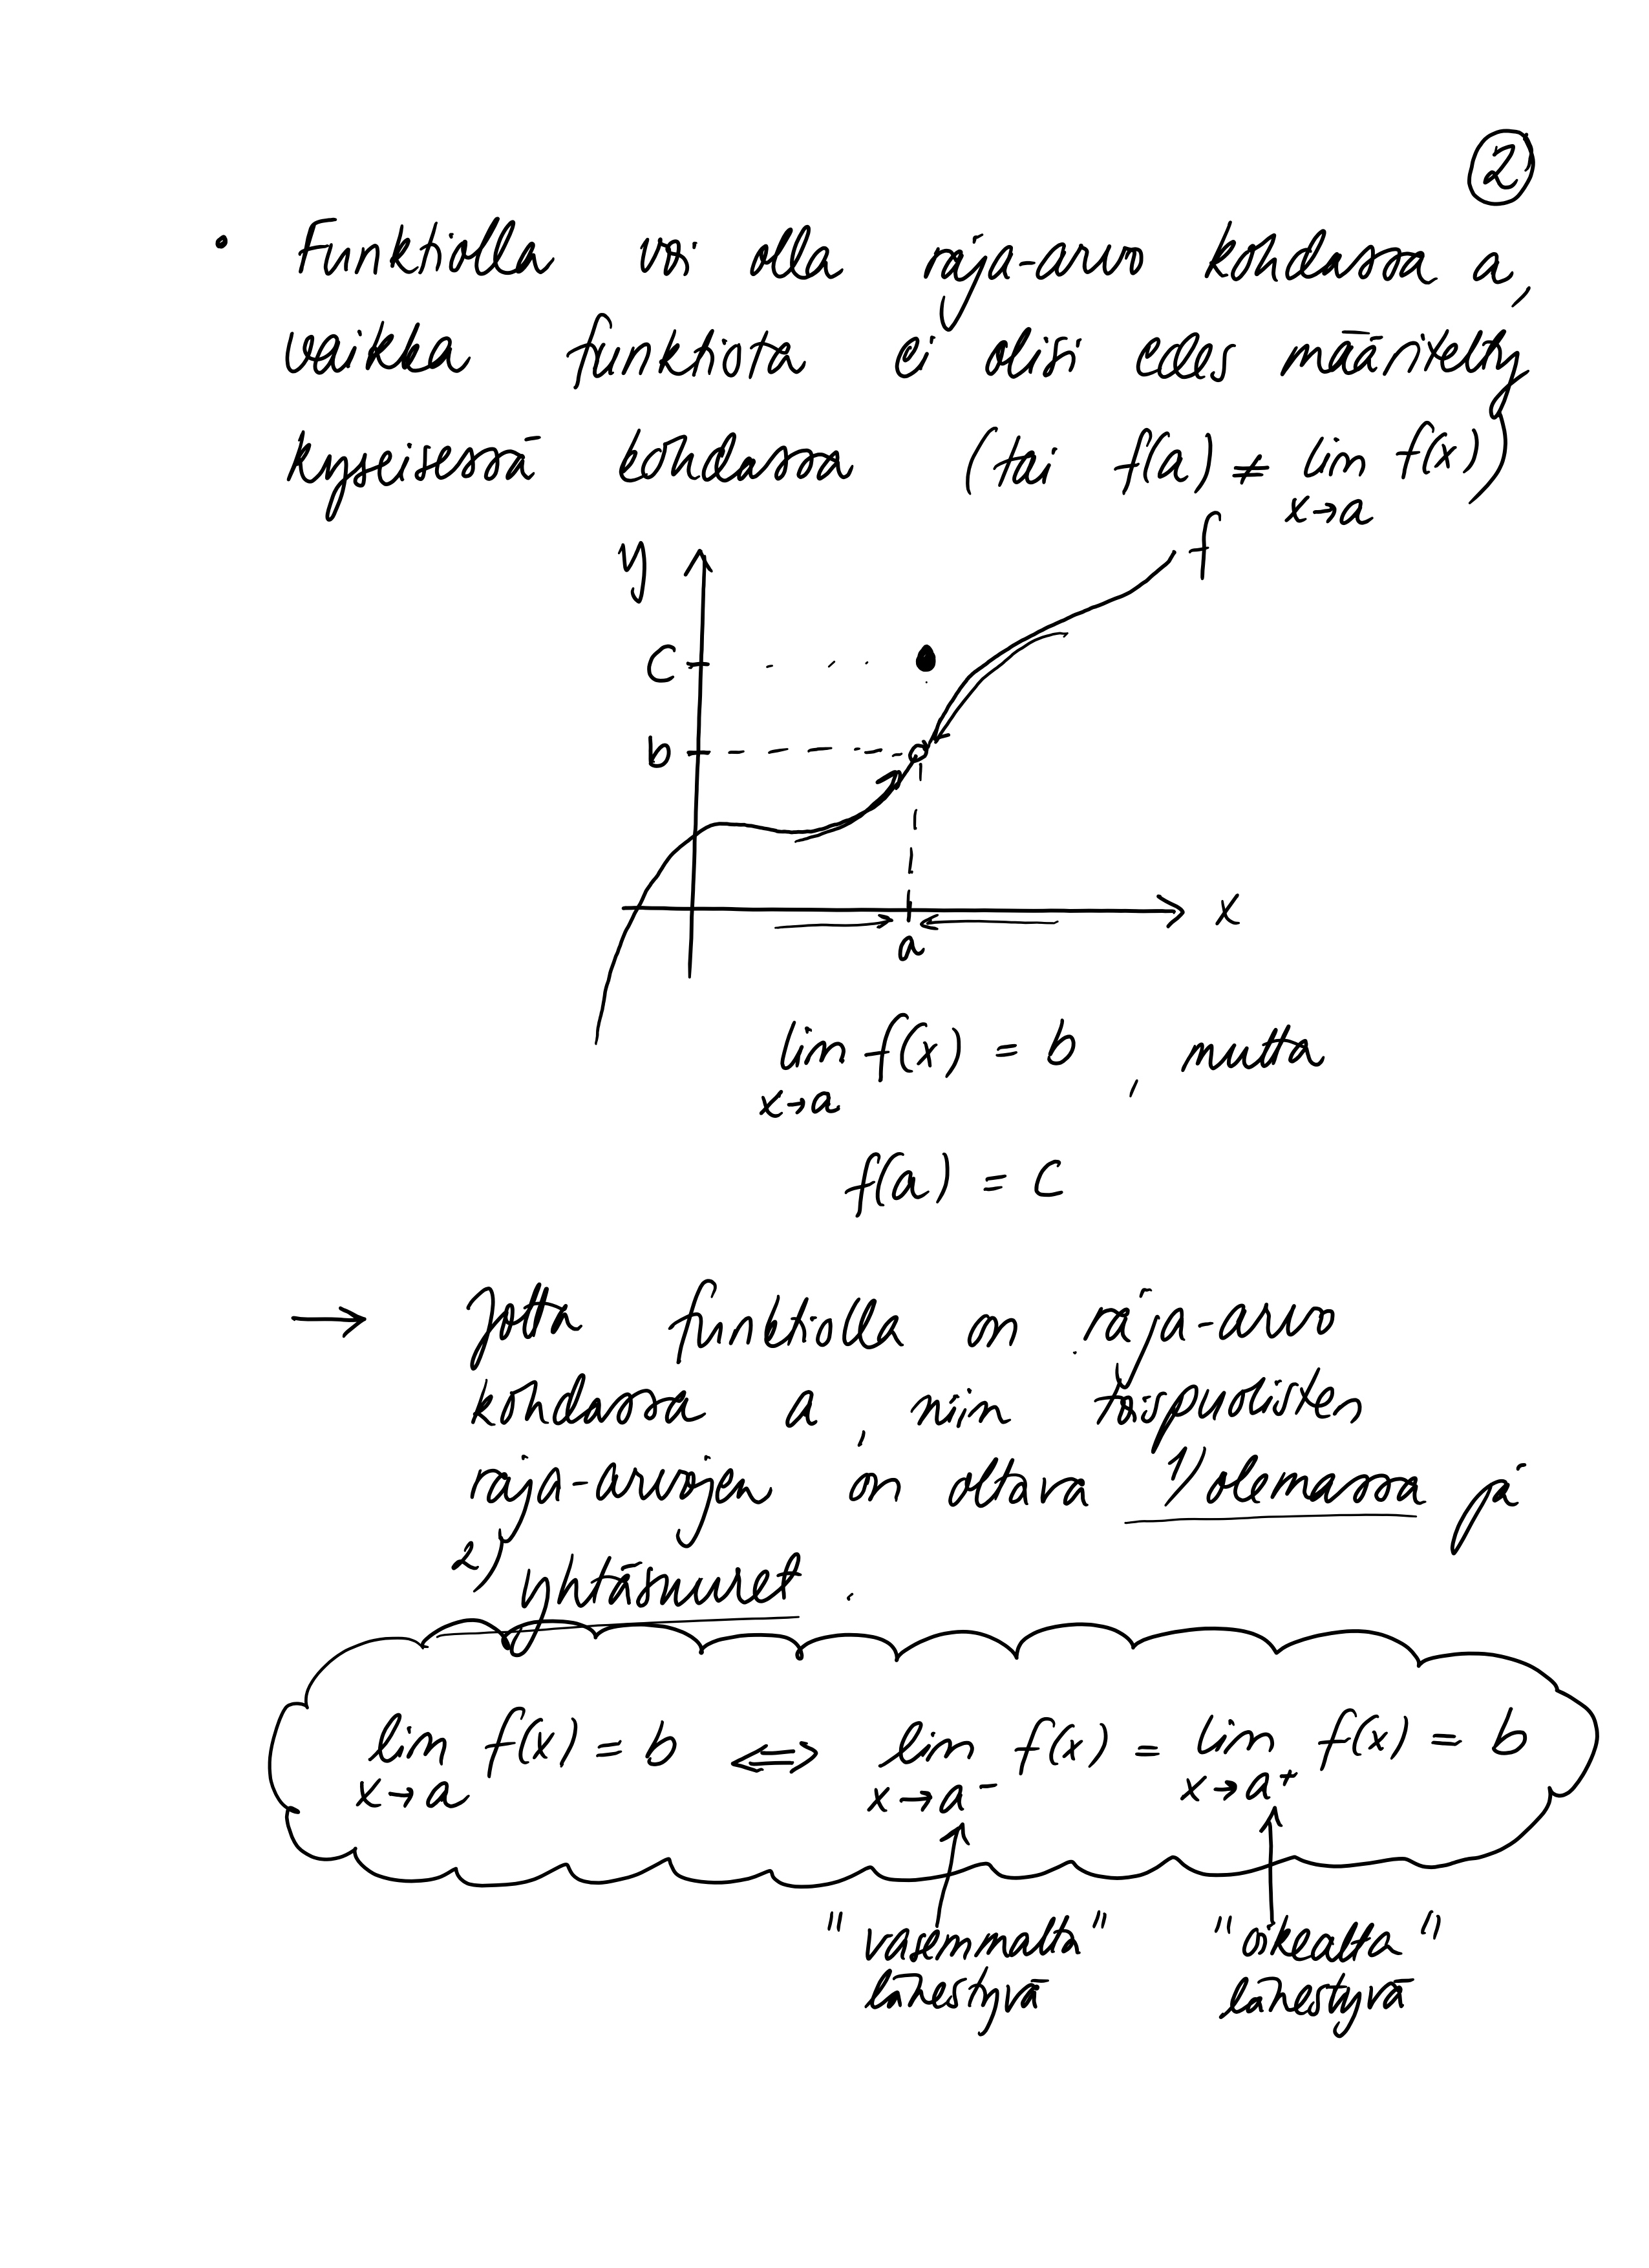 2
• Funktiolla voi olla raja-arvo kohdassa a,
vaikka funktiota ei olisi edes määritelty
kyseisessä kohdassa (tai f(a) ≠ lim f(x))
x→a
f
y
c
b
x
a
lim f(x) = b, mutta
x→a
f(a) = c
→ Jotta funktiolla on raja-arvo
kohdassa a, niin toispuolisten
raja-arvojen on oltava 1) olemassa ja
2) yhtäsuuret.
lim f(x) = b ⟺ lim f(x) = lim f(x) = b
x→a x→a⁻ x→a⁺
"vasemmalta" "oikealta"
lähestyvä lähestyvä